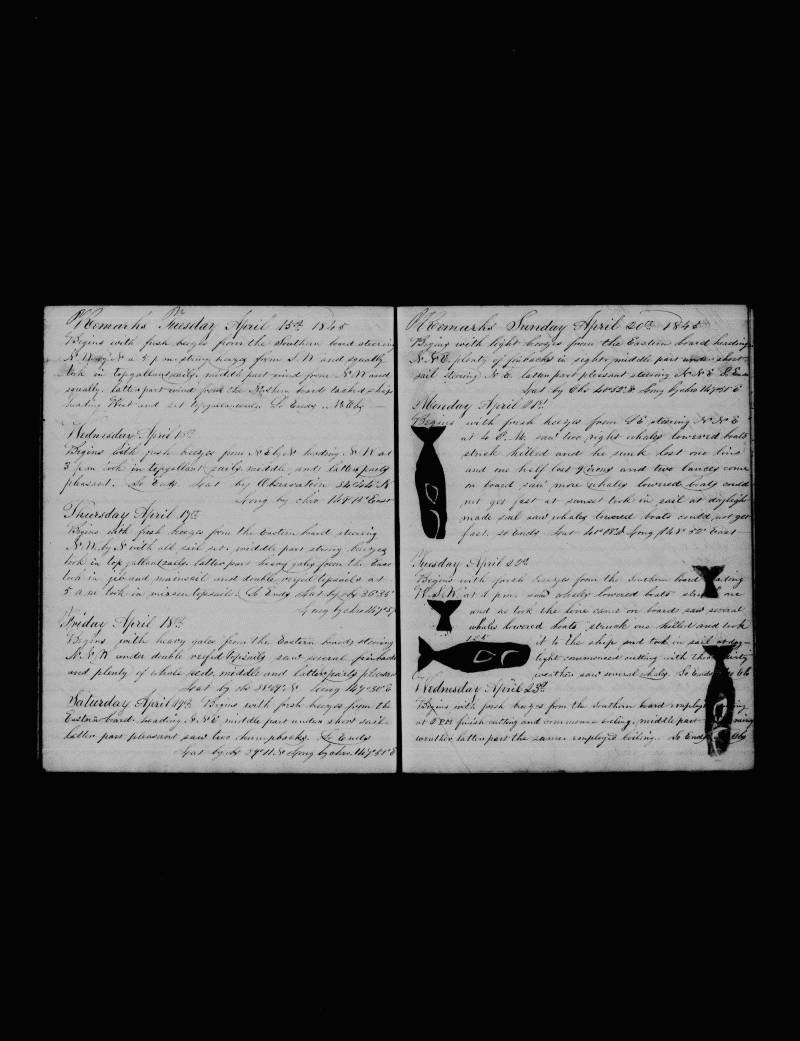 Remarks Tuesday April 15th 1845
Begins with fresh breezes from the Southern board steering
N. W. by N a 5 p.m. strong breezes from S. W and squally
took in topgallantsails, middle part wind from N. W and
squally. latter part wind from the Northern board tacked ship
heading West and set topgallantsails So Ends
Wednesday April 16th
Begins with fresh breezes from N. E by N heading N. W at
3 p.m took in topgallant sails middle and latter parts
pleasant. So Ends Lat by Observation 34°44 N
Long by chro 148°15 East
Thursday April 17th
Begins with fresh breezes from the Eastern board steering
N. W. by N with all sail set, middle part strong breezes
took in top gallantsails. latter part heavy gales from the East
took in jib and mainsail and double reefed topsails at
5 a.m took in mizzen topsail. So Ends Lat by Ob 36°35
Long by chro 147°
Friday April 18th
Begins with heavy gales from the Eastern board, steering
N. N. W under double reefed topsails saw several finbacks
and plenty of whale feed, middle and latter parts pleasant
Lat by Ob 38°29 N Long 147°30 E
Saturday April 19th Begins with fresh breezes from the
Eastern board heading N. N. E middle part under short sail
latter part pleasant saw two humpbacks. So Ends
Lat by Ob 39°11 N Long by chro. 147°51 E
Remarks Sunday April 20th 1845
Begins with light breezes from the Eastern board heading
N. N. E. plenty of finbacks in sight, middle part under short
sail steering N. E. latter part pleasant steering N. N. E So Ends
Lat by Obs 40°52 N Long by chro 147°51 E
Monday April 21st
Begins with fresh breezes from S E steering N. N. E
at 4 P. M. saw two right whales lowered boats
struck killed and he sunk lost one line
and one half lost 2 irons and two lances came
on board saw more whales lowered boats could
not get fast at sunset took in sail at daylight
made sail saw whales lowered boats could not get
fast. So Ends Lat 41°18 N Long 148°52 East
Tuesday April 22d
Begins with fresh breezes from the Southern board heading
W. S. W at 1 p.m. saw whales lowered boats struck one
and he took the line came on board saw several
whales lowered boats, struck one killed and took
it to the ship and took in sail at day
light commenced cutting with thick dirty
weather saw several whales. So Ends
Wednesday April 23d
Begins with fresh breezes from the Southern board employed
at 2 P.M finish cutting and commence boiling, middle part
weather, latter part the same employed boiling. So Ends